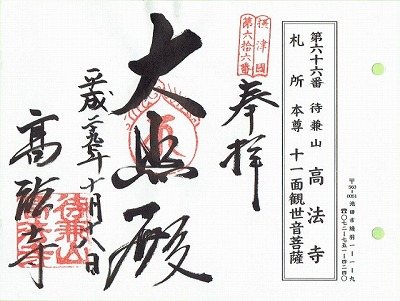 第六十六番 待兼山 高法寺
札所 本尊 十一面観世音菩薩
〒563-0051 池田市綾羽一-一-一九
☎〇七二-七五一-四二四〇
摂津國
第六拾六番
奉拝
大悲殿
平成
十月八日
高法寺
待兼山